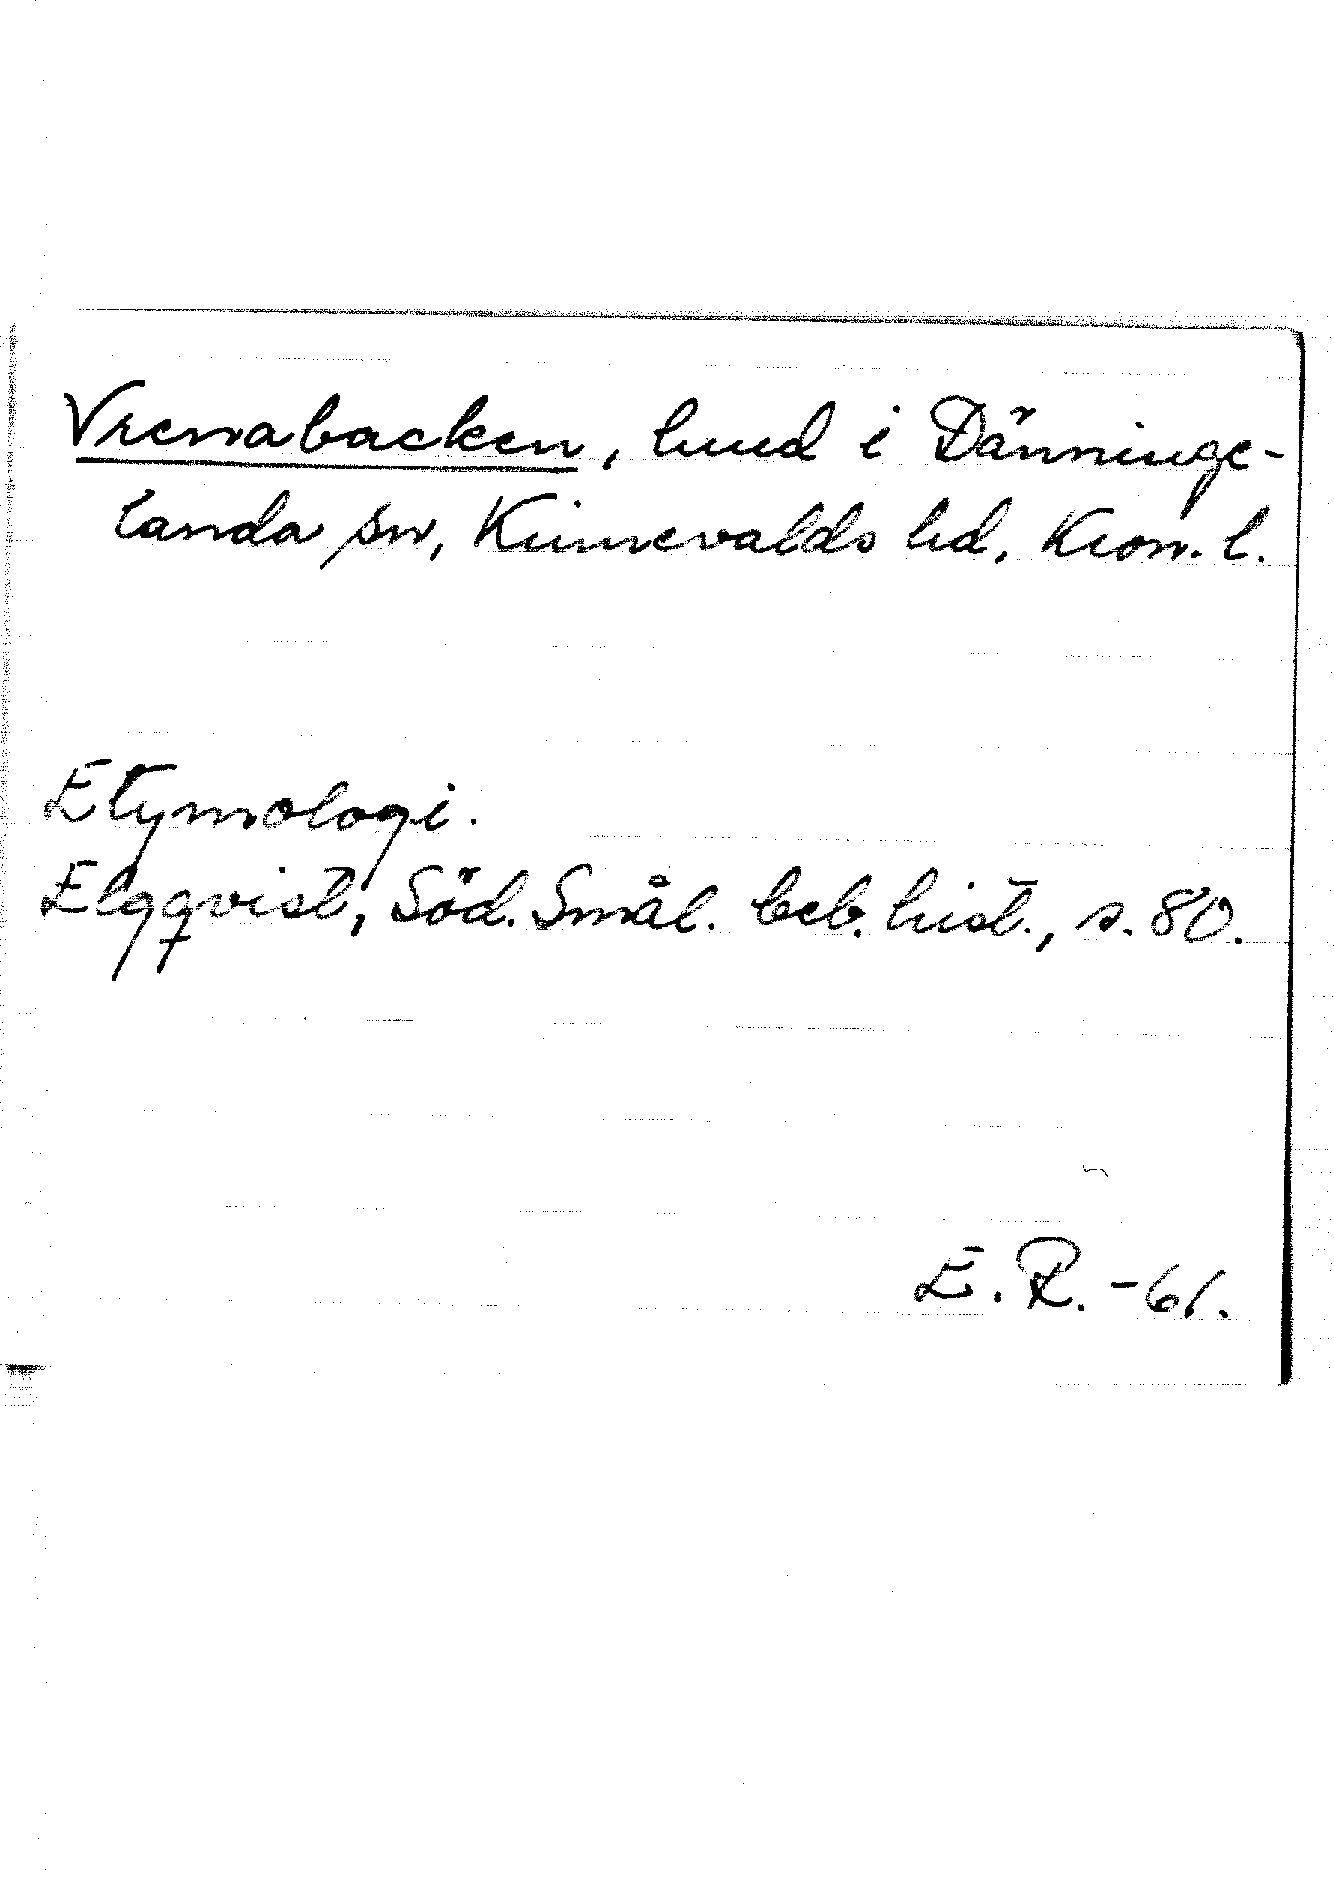 Vrenabacken, lund i Dänninge-
landa sn, Kinnevalds hd, Kron. l.
Etymologi.
Elgqvist, Söd. Smål. beb. hist., s. 80.
E. R. -61.